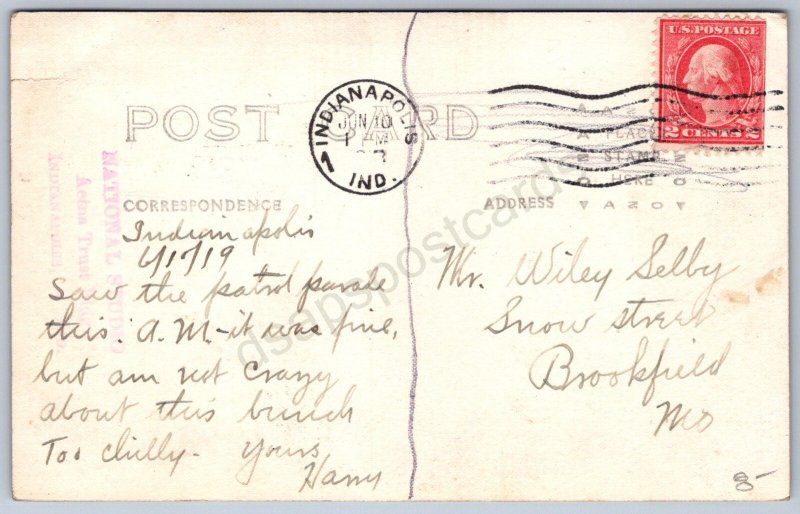 POST CARD
INDIANAPOLIS
JUN 10
1 PM
IND.
U.S. POSTAGE
2 CENTS 2
PLACE
STAMP
HERE
AZO
NATIONAL STUDIO
Trust
INDIANAPOLIS,
CORRESPONDENCE
ADDRESS
Indianapolis
6/17/19
Saw the patrol parade
this. A.M.-it was fine,
but am not crazy
about this bunch
Too chilly- Yours
Harry
Mr. Wiley Selby
Snow street
Brookfield
Mo
8-
dsapspostcards